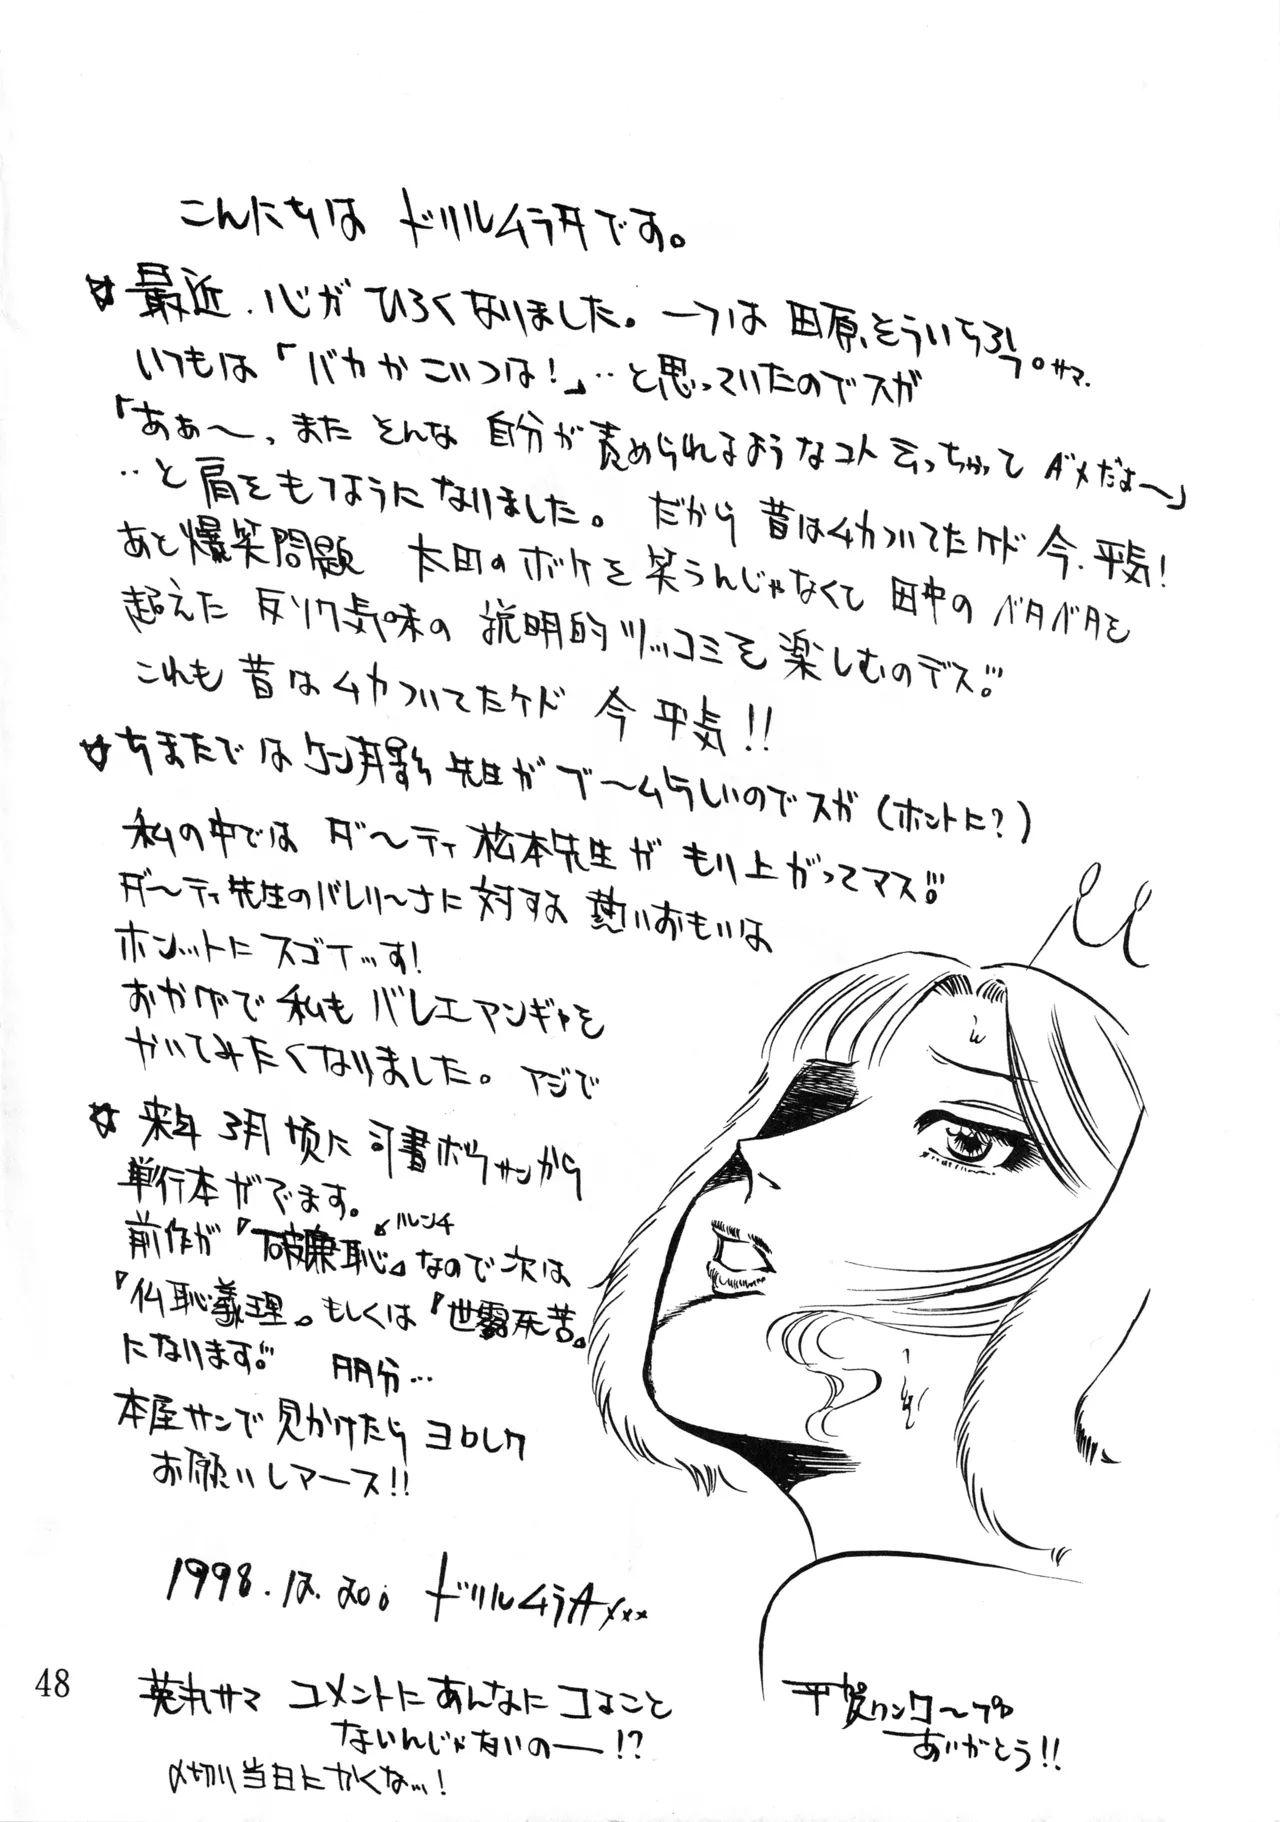 こんにちは ドリルムラタです。
☆最近、心がひろくなりました。一つは田原そういちろうサマ。
いつもは「バカかこいつは!」…と思っていたのでスガ
「あぁ〜っ、また そんな 自分が責められるようなコト云っちゃって ダメだよ〜」
…と肩をもつようになりました。だから昔はムカついてたケド 今、平気!
あと爆笑問題 太田のボケを笑うんじゃなくて 田中の ベタベタを
超えた 反ソク気味の説明的ツッコミを楽しむのデス!!
これも昔はムカついてたケド 今 平気!!
☆ちまたではケン月影先生がブームらしいのでスガ(ホントに?)
私の中では ダ〜ティ松本先生が もり上がってマス!!
ダ〜ティ先生のバレリ〜ナに対する熱いおもいは
ホンットにスゴイっす!
おかげで私も バレエマンガを
かいてみたくなりました。マジで
☆来年3月頃に司書ボウサンから
単行本がでます。
前作が『破廉恥』なので次は
ハレンチ
『仏恥義理』もしくは『世露死苦』
になります!! 多分…
本屋サンで見かけたら ヨロしク
お願いしマース!!
1998.12.20. ドリルムラタ×××
48
コメントにあんなにコること
ないんじゃないのー!?
〆切り当日にかくな…!
平賀ワンワ〜プ
ありがとう!!